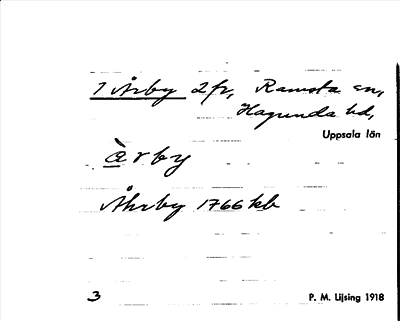 1 Årby 2 fr, Ramsta sn,
Hagunda hd,
Uppsala län
àrby
Åhrby 1766 kb
3
P. M. Liljsing 1918